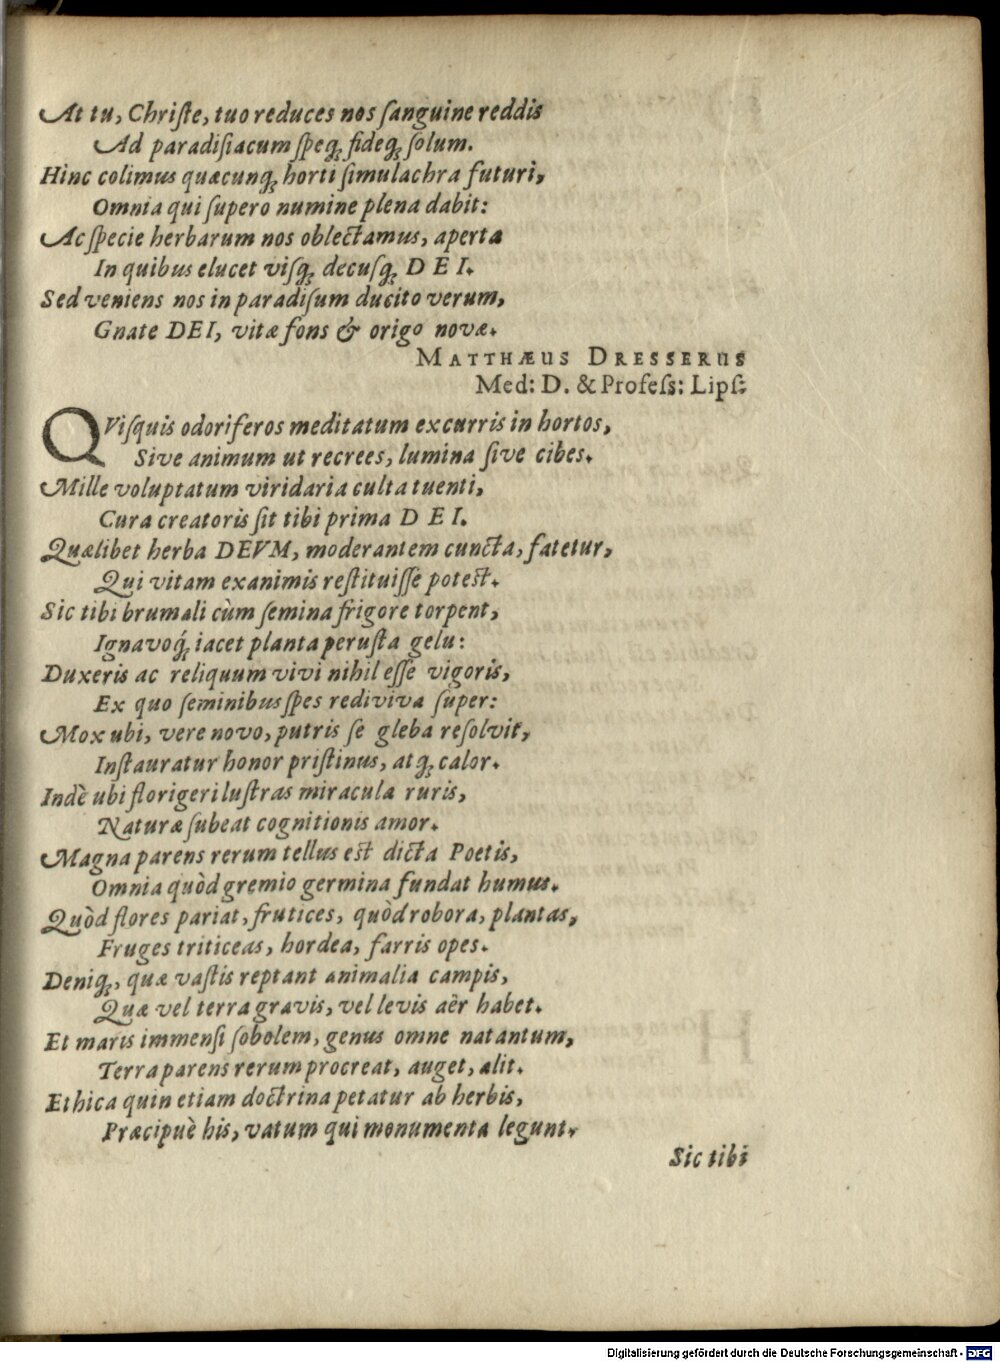 At tu, Chriſte, tuo reduces nos ſanguine reddis
Ad paradiſiacum ſpeq́; fideq́; ſolum.
Hinc colimus quæcunq́; horti ſimulachra futuri,
Omnia qui ſupero numine plena dabit:
Ac ſpecie herbarum nos oblectamus, aperta
In quibus elucet viſq́; decuſq́; DEI.
Sed veniens nos in paradiſum ducito verum,
Gnate DEI, vitæ fons & origo novæ.
MATTHÆUS DRESSERUS
Med: D. & Profeſs: Lipſ:
QViſquis odoriferos meditatum excurris in hortos,
Sive animum ut recrees, lumina ſive cibes.
Mille voluptatum viridaria culta tuenti,
Cura creatoris ſit tibi prima DEI.
Quælibet herba DEVM, moderantem cuncta, fatetur,
Qui vitam exanimis reſtituiſſe poteſt.
Sic tibi brumali cùm ſemina frigore torpent,
Ignavoq́; iacet planta peruſta gelu:
Duxeris ac reliquum vivi nihil eſſe vigoris,
Ex quo ſeminibus ſpes rediviva ſuper:
Mox ubi, vere novo, putris ſe gleba reſolvit,
Inſtauratur honor priſtinus, atq́; calor.
Indè ubi florigeri luſtras miracula ruris,
Naturæ ſubeat cognitionis amor.
Magna parens rerum tellus eſt dicta Poetis,
Omnia quòd gremio germina fundat humus.
Quòd flores pariat, frutices, quòd robora, plantas,
Fruges triticeas, hordea, farris opes.
Deniq́;, quæ vaſtis reptant animalia campis,
Quæ vel terra gravis, vel levis aër habet.
Et maris immenſi ſobolem, genus omne natantum,
Terra parens rerum procreat, auget, alit.
Ethica quin etiam doctrina petatur ab herbis,
Præcipuè his, vatum qui monumenta legunt.
Sic tibi
Digitalisierung gefördert durch die Deutsche Forschungsgemeinschaft - DFG